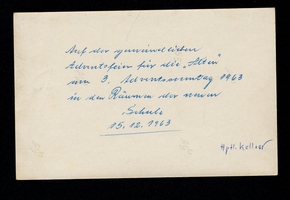 Auf der gemeindlichen
Adventsfeier für die „Alten"
am 3. Adventssonntag 1963
in den Räumen der neuen
Schule
15.12.1963
Kellner